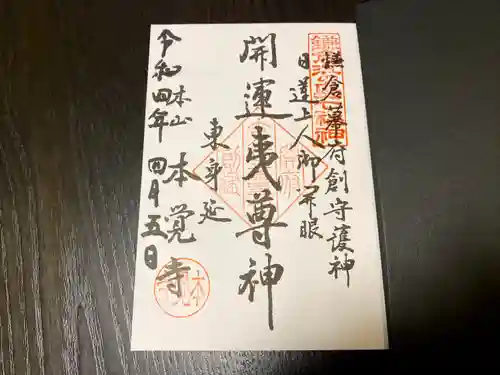 鎌倉幕府創守護神
日蓮上人御開眼
開運夷尊神
東身延
本山 本覚寺
令和四年 四月五日